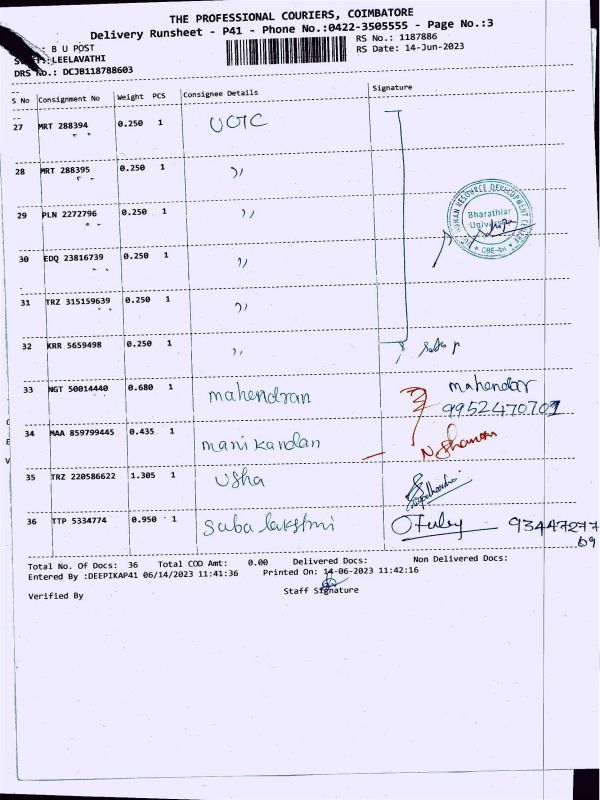 THE PROFESSIONAL COURIERS, COIMBATORE
Delivery Runsheet - P41 - Phone No.:0422-3505555 - Page No.:3
: B U POST
RS No.: 1187886
LEELAVATHI
RS Date: 14-Jun-2023
DRS No.: DCJB118788603
S No Consignment No Weight PCS Consignee Details Signature
27 MRT 288394 0.250 1 UGTC
28 MRT 288395 0.250 1 ,,
29 PLN 2272796 0.250 1 ,,
HUMAN RESOURCE DEVELOPMENT CENTRE
Bharathiar
University
30 EDQ 23816739 0.250 1 ,,
31 TRZ 315159639 0.250 1 ,,
32 KRR 5659498 0.250 1 ,,
33 NGT 50014440 0.680 1 mahendran mahendar
9952470701
34 MAA 859799445 0.435 1 manikandan
35 TRZ 220586622 1.305 1 Usha
36 TTP 5334774 0.950 1 Suba lakshmi 93447277
69
Total No. Of Docs: 36 Total COD Amt: 0.00 Delivered Docs: Non Delivered Docs:
Entered By :DEEPIKAP41 06/14/2023 11:41:36 Printed On: 14-06-2023 11:42:16
Verified By Staff Signature